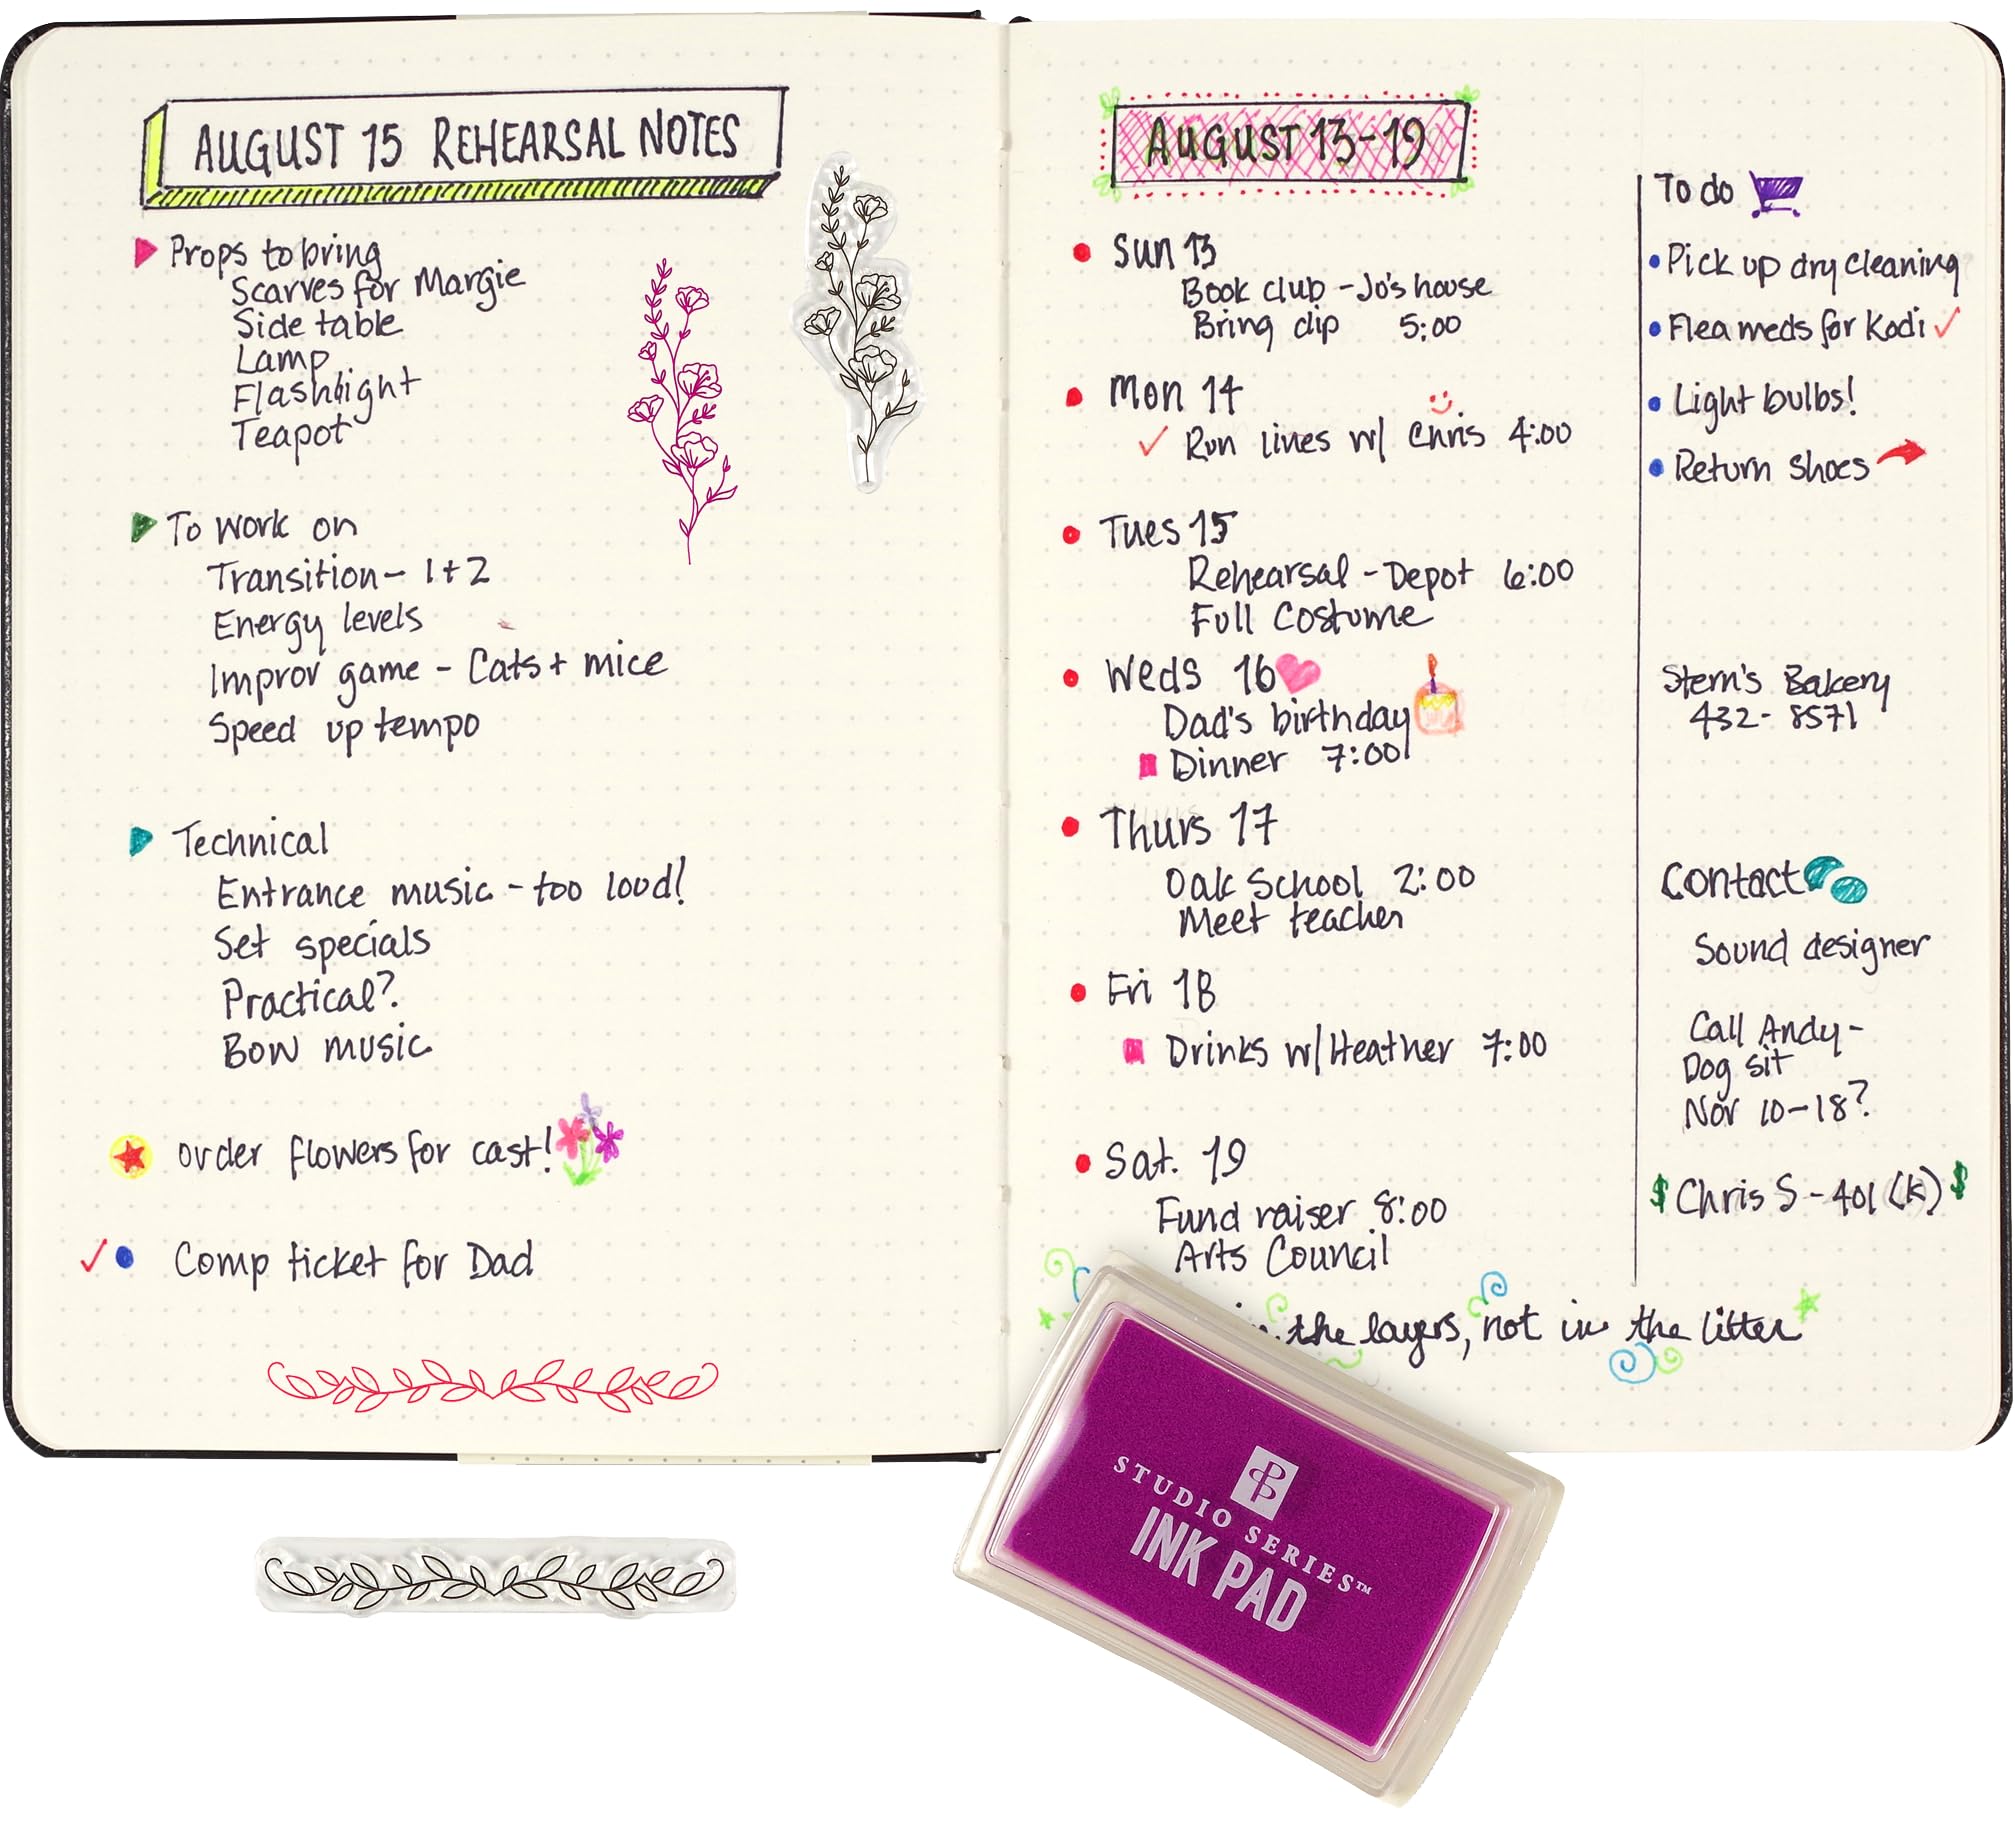 AUGUST 15 REHEARSAL NOTES
Props to bring
Scarves for Margie
Side table
Lamp
Flashlight
Teapot
To work on
Transition - 1+2
Energy levels
Improv game - Cats + mice
Speed up tempo
Technical
Entrance music - too loud!
Set specials
Practical?
Bow music
order flowers for cast!
Comp ticket for Dad
AUGUST 13-19
Sun 13
Book club - Jo's house
Bring dip 5:00
Mon 14
Run lines w/ Chris 4:00
Tues 15
Rehearsal - Depot 6:00
Full Costume
Weds 16
Dad's birthday
Dinner 7:00
Thurs 17
Oak School 2:00
Meet teacher
Fri 18
Drinks w/ Heather 7:00
Sat. 19
Fund raiser 8:00
Arts Council
the layers, not in the litter
To do
Pick up dry cleaning
Flea meds for Kodi
Light bulbs!
Return shoes
Stern's Bakery
432-8571
Contact
Sound designer
Call Andy -
Dog sit
Nov 10-18?
$ Chris S - 401 (k) $
STUDIO SERIES™
INK PAD